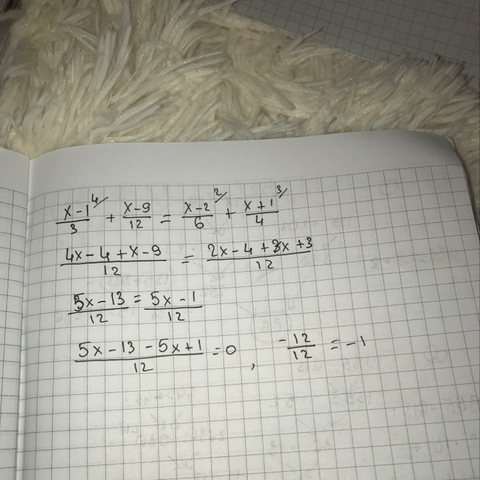 x-1/3 4/ + x-9/12 = x-2/6 2/ + x+1/4 3/
4x-4+x-9/12 = 2x-4+3x+3/12
5x-13/12 = 5x-1/12
5x-13-5x+1/12 =0, -12/12 =-1